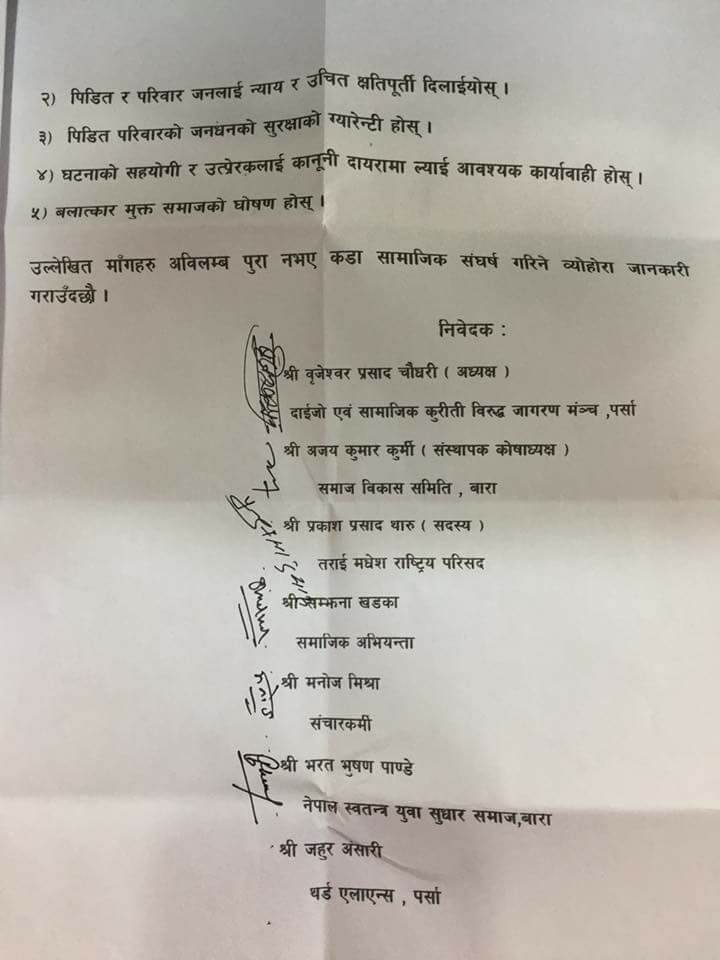 २) पिडित र परिवार जनलाई न्याय र उचित क्षतिपूर्ती दिलाईयोस् ।
३) पिडित परिवारको जनधनको सुरक्षाको ग्यारेन्टी होस् ।
४) घटनाको सहयोगी र उत्प्रेरकलाई कानूनी दायरामा ल्याई आवश्यक कार्यावाही होस् ।
५) बलात्कार मुक्त समाजको घोषण होस् ।
उल्लेखित माँगहरु अविलम्ब पुरा नभए कडा सामाजिक संघर्ष गरिने व्योहोरा जानकारी
गराउँदछौ ।
निवेदक :
श्री वृजेश्वर प्रसाद चौधरी ( अध्यक्ष )
दाईजो एवं सामाजिक कुरीती विरुद्ध जागरण मञ्च ,पर्सा
श्री अजय कुमार कुर्मी ( संस्थापक कोषाध्यक्ष )
समाज विकास समिति , बारा
श्री प्रकाश प्रसाद थारु ( सदस्य )
तराई मधेश राष्ट्रिय परिसद
श्री सम्झना खडका
समाजिक अभियन्ता
श्री मनोज मिश्रा
संचारकर्मी
श्री भरत भुषण पाण्डे
नेपाल स्वतन्त्र युवा सुधार समाज,बारा
श्री जहुर अंसारी
थर्ड एलाएन्स , पर्सा